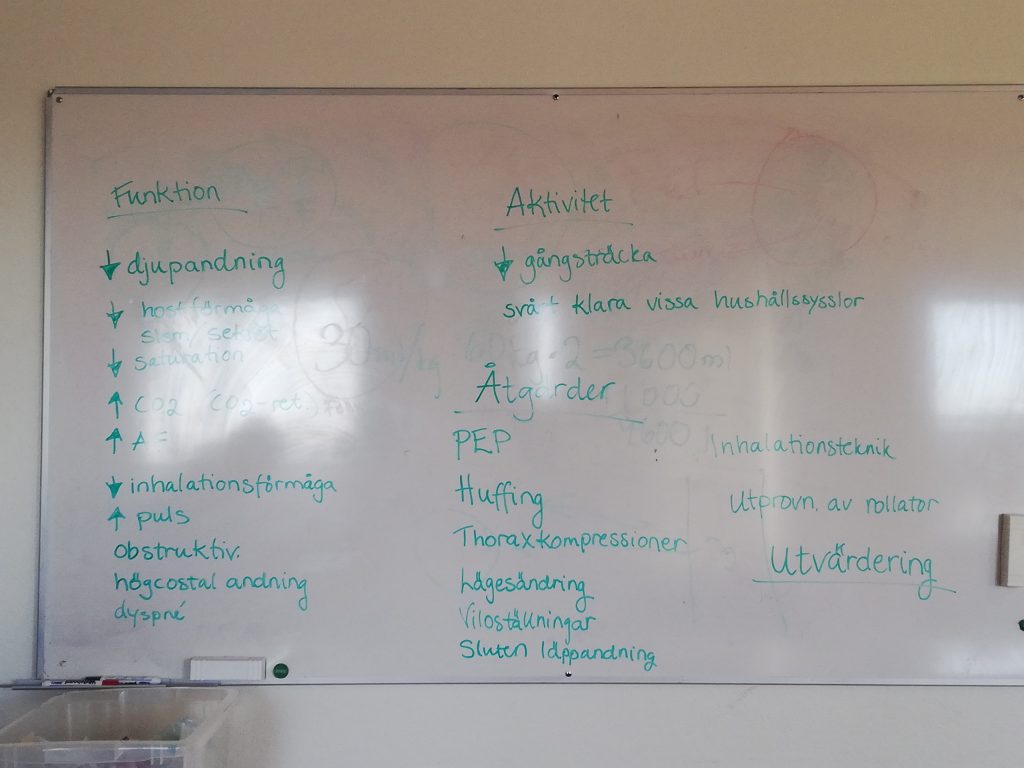 Funktion
↓ djupandning
↓ hostförmåga
slem/sekret
↓ saturation
↑ CO2 CO2-ret.
↑ A
↓ inhalationsförmåga
↑ puls
obstruktiv.
högcostal andning
dyspné
Aktivitet
↓ gångsträcka
svårt klara vissa hushållssysslor
30 ml/kg 60 kg · 2 = 3600 ml
Åtgärder
PEP
Huffing
Thoraxkompressioner
Lägesändring
Viloställningar
Sluten läppandning
Inhalationsteknik
Utprovn. av rollator
Utvärdering